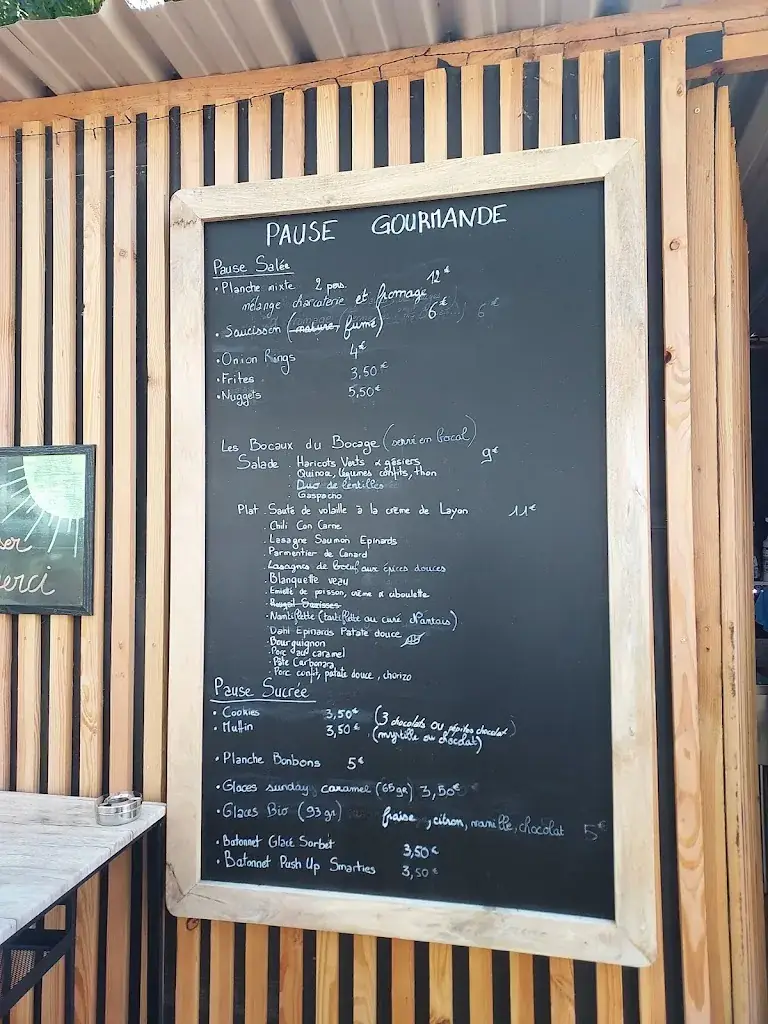 PAUSE GOURMANDE
Pause Salée
• Planche mixte 2 pers. 12€
mélange charcuterie et fromage
• Saucisson (nature, fumé) 6€ 6€
• Onion Rings 4€
• Frites 3,50€
• Nuggets 5,50€
Les Bocaux du Bocage (servi en bocal)
Salade . Haricots Verts & gésiers 9€
. Quinoa, légumes confits, thon
. Duo de lentilles
. Gaspacho
Plat . Sauté de volaille à la crème de Layon 11€
. Chili Con Carne
. Lasagne Saumon Epinards
. Parmentier de Canard
. Lasagnes de boeuf aux épices douces
. Blanquette veau
. Emietté de poisson, crème & ciboulette
. Rougail Saucisses
. Nantiflette (tartiflette au curé Nantais)
. Dahl Epinards Patate douce
. Bourguignon
. Porc au caramel
. Pâte Carbonara
. Porc confit, patate douce, chorizo
Pause Sucrée
• Cookies 3,50€ (3 chocolats ou pépites chocolat)
• Muffin 3,50€ (myrtille ou chocolat)
• Planche Bonbons 5€
• Glaces sunday caramel (65gr) 3,50€
• Glaces Bio (93gr) fraise, citron, vanille, chocolat 5€
• Batonnet Glacé Sorbet 3,50€
• Batonnet Push Up Smarties 3,50€
erci